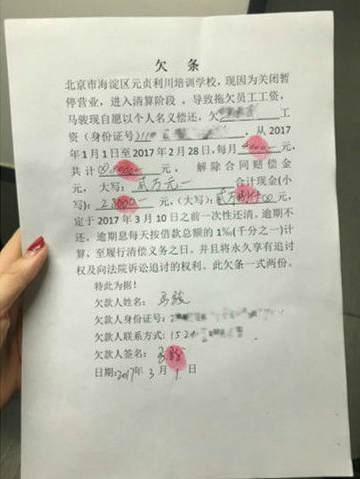 欠 条
北京市海淀区元贞利川培训学校，现因为关闭暂
停营业，进入清算阶段，导致拖欠员工工资，
马骏现自愿以个人名义偿还，欠 工
资（身份证号 ，从 2017
年1月1日至 2017 年 2 月 28 日，每月 元，
共计 元， 解除合同赔偿金
元， 大写：贰万元 合计现金(小
写)： 元，（大写）： 元，
定于 2017 年 3 月 10 日之前一次性还清。逾期不
还，逾期息每天按借款总额的 1‰(千分之一)计
算，至履行清偿义务之日。并且将永久享有追讨
权及向法院诉讼追讨的权利。此欠条一式两份。
特此为据！
欠款人姓名：马骏
欠款人身份证号：2
欠款人联系方式：152
欠款人签名：马骏
日期:2017年 3 月 1 日